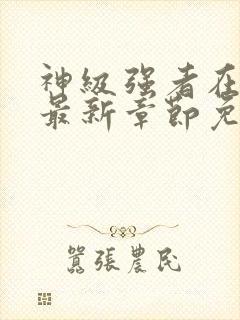 神级强者在
最新章節免
囂張農民